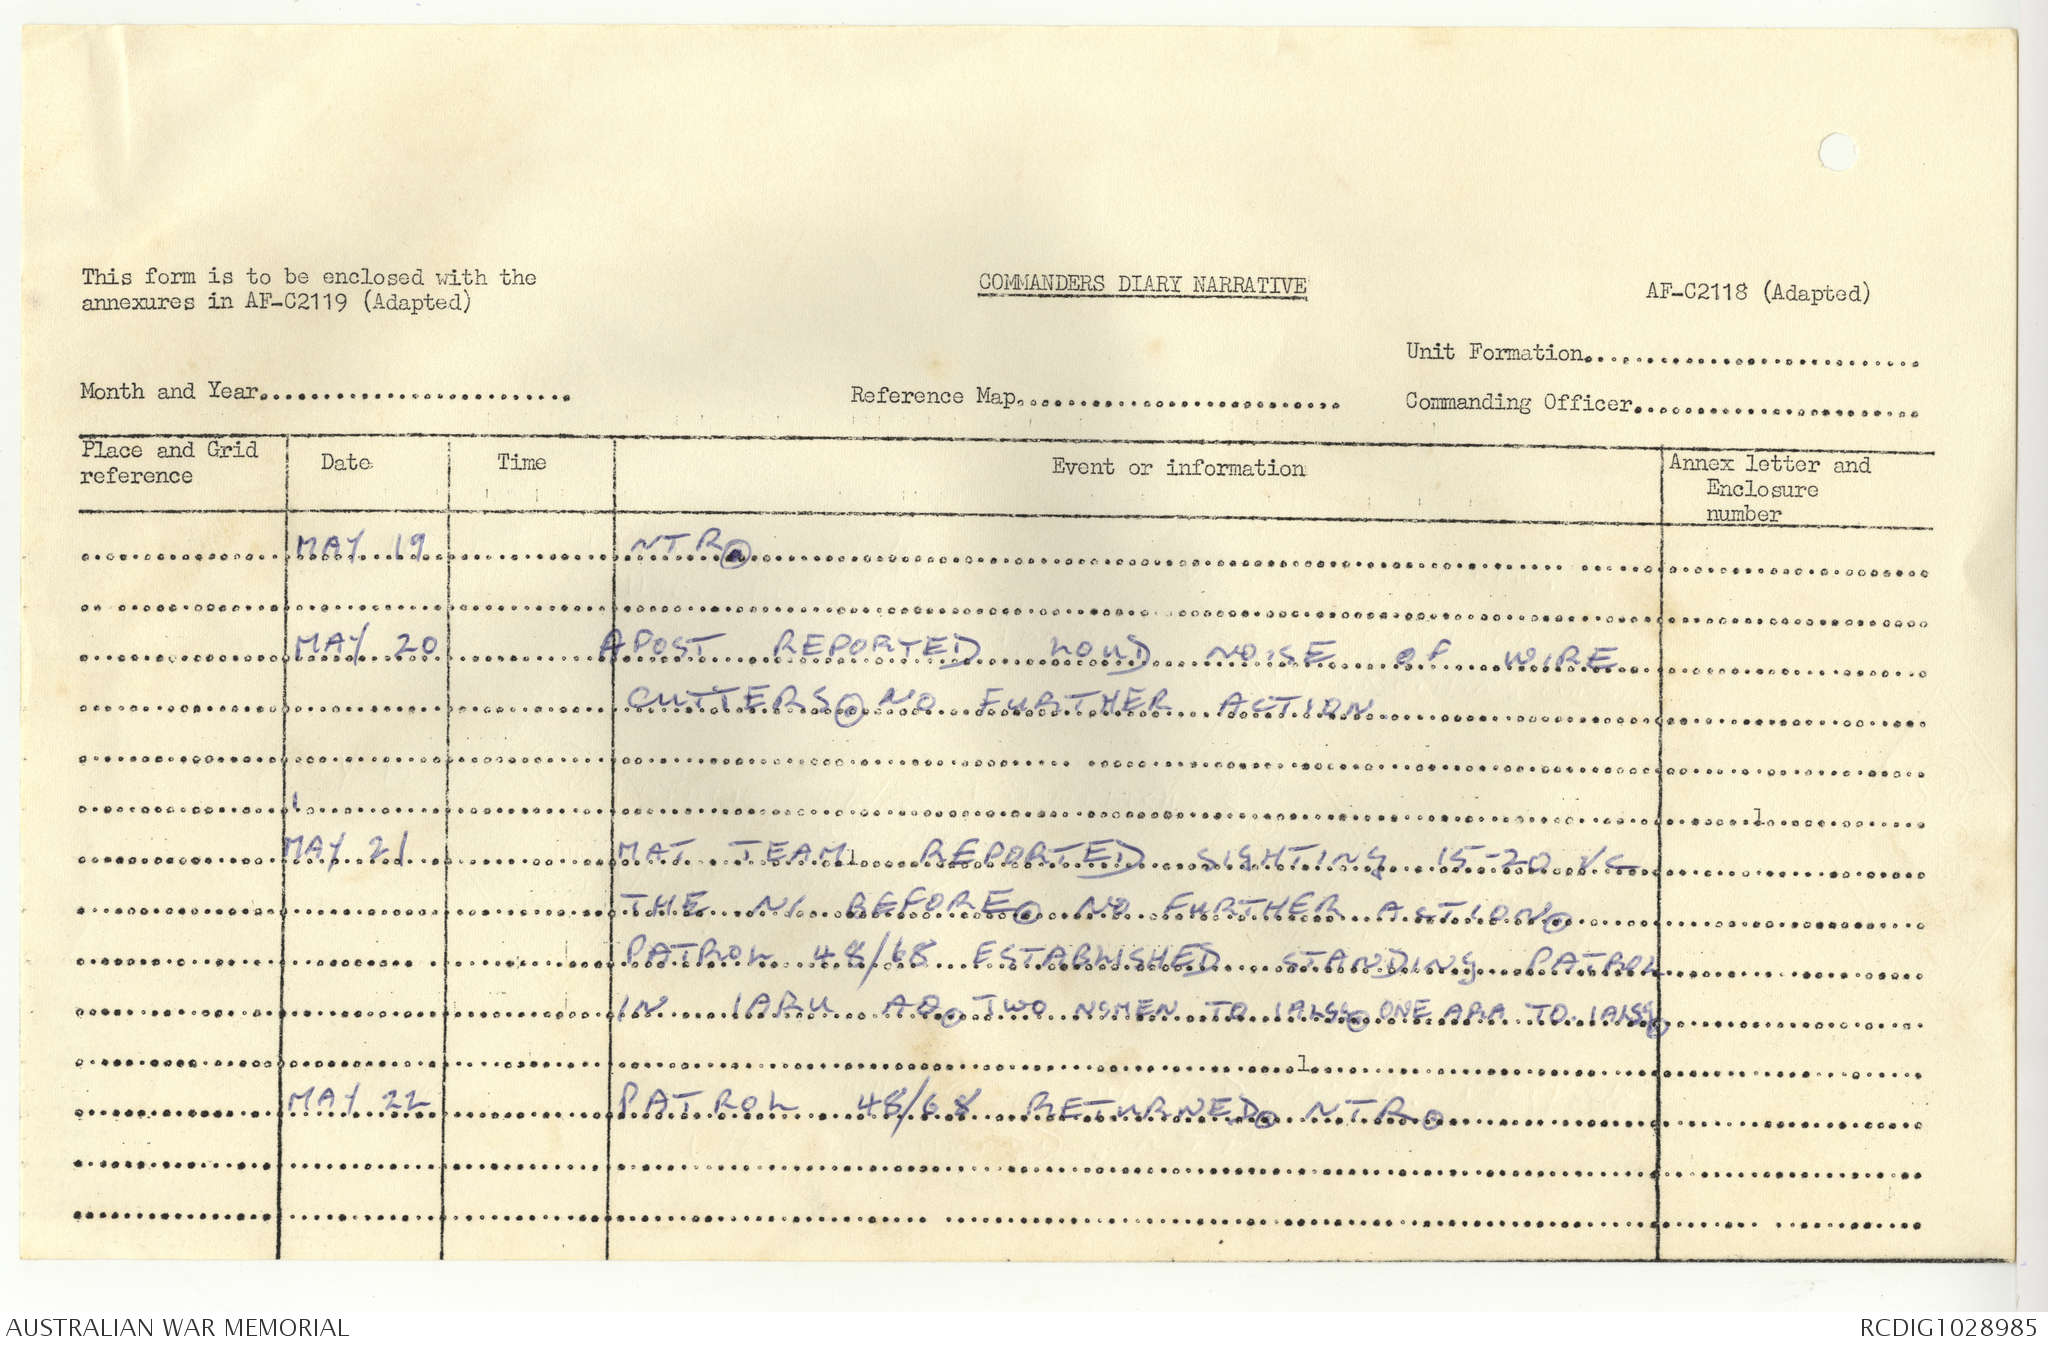 This form is to be enclosed with the
annexures in AF-C2119 (Adapted)
COMMANDERS DIARY NARRATIVE
AF-C2118 (Adapted)
Unit Formation
Month and Year
Reference Map
Commanding Officer
Place and Grid
reference
Date
Time
Event or information
Annex letter and
Enclosure
number
MAY 19 NTR.
MAY 20 A POST REPORTED LOUD NOISE OF WIRE
CUTTERS. NO FURTHER ACTION
MAY 21 MAT TEAM REPORTED SIGHTING 15-20 VC
THE NI BEFORE. NO FURTHER ACTION.
PATROL 48/68 ESTABLISHED STANDING PATROL
IN 1ARU AO. TWO TO ONE ARA TO
MAY 22 PATROL 48/68 RETURNED. NTR.
AUSTRALIAN WAR MEMORIAL
RCDIG1028985